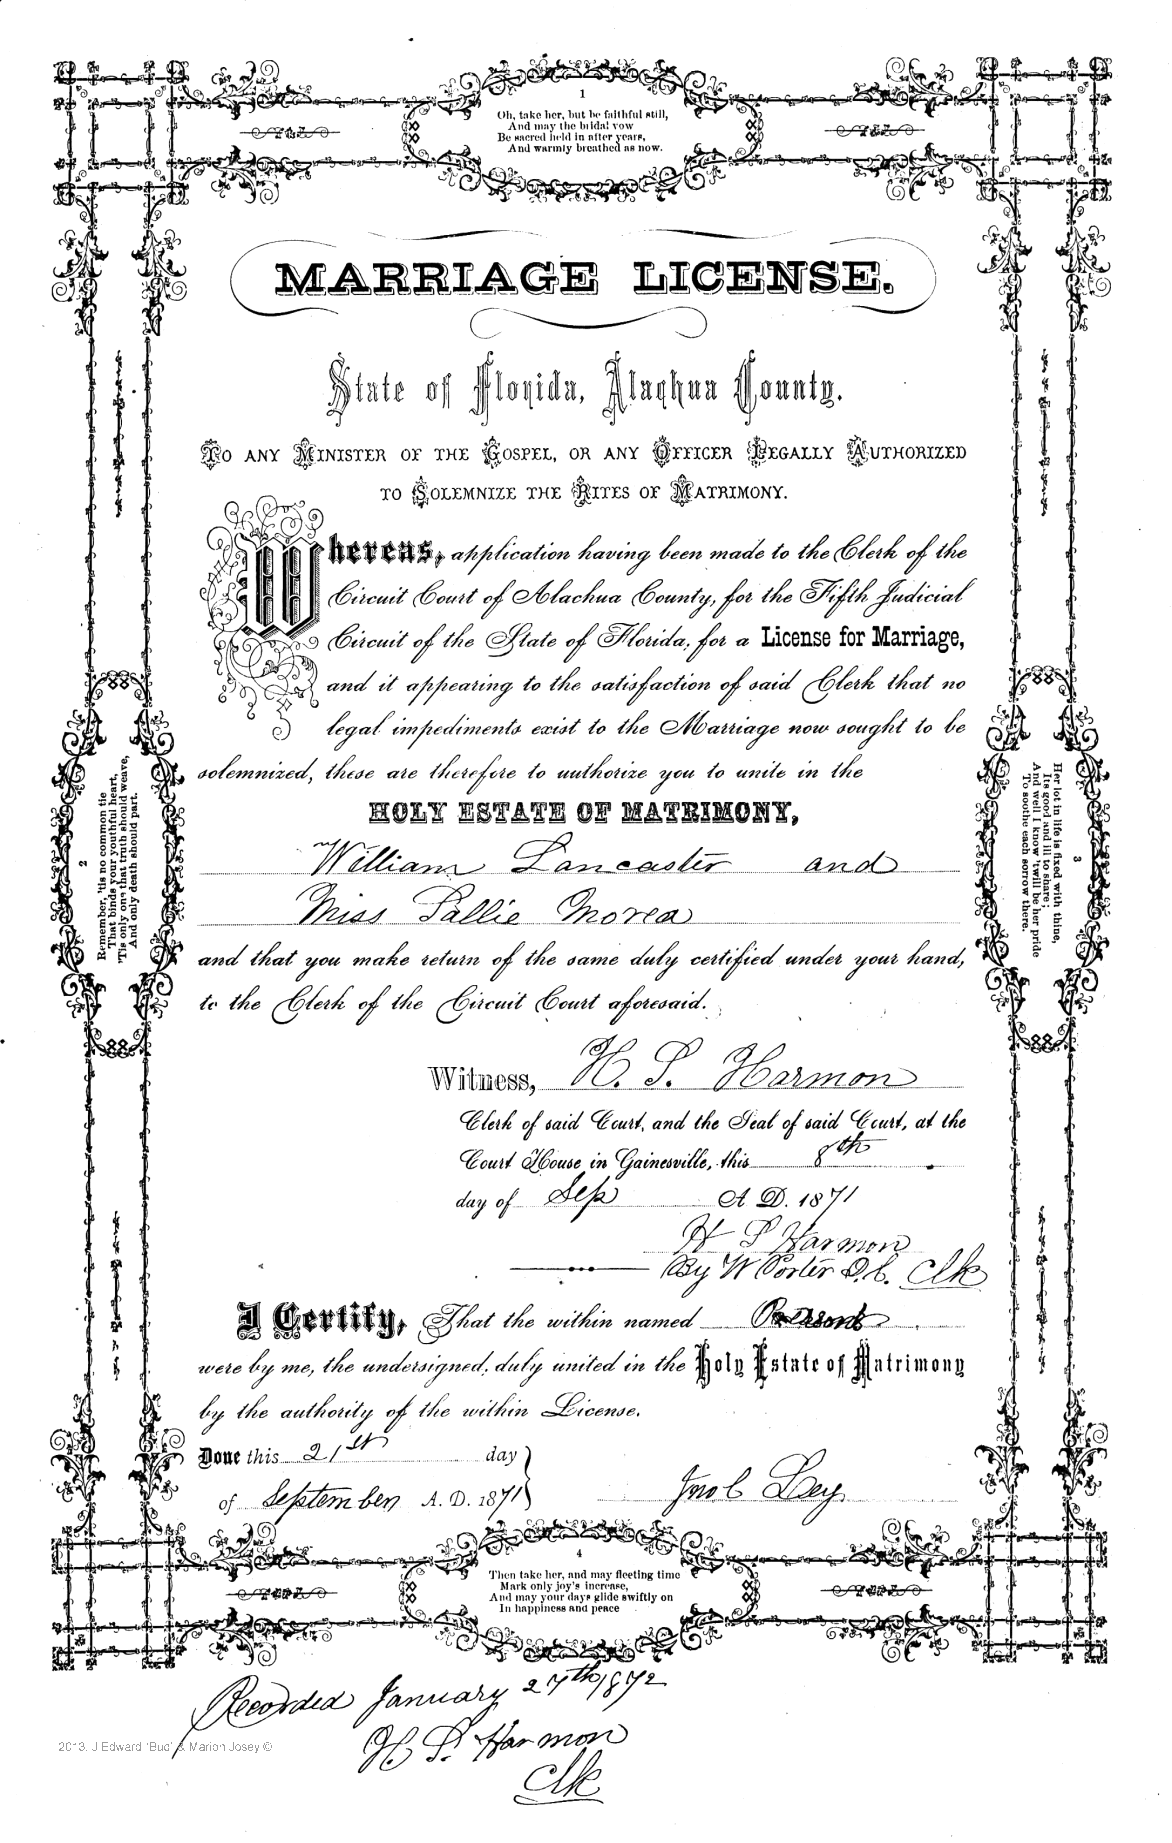 1
Oh, take her, but be faithful still,
And may the bridal vow
Be sacred held in after years,
And warmly breathed as now.
MARRIAGE LICENSE.
State of Florida, Alachua County.
TO ANY MINISTER OF THE GOSPEL, OR ANY OFFICER LEGALLY AUTHORIZED
TO SOLEMNIZE THE RITES OF MATRIMONY.
Whereas, application having been made to the Clerk of the
Circuit Court of Alachua County, for the Fifth Judicial
Circuit of the State of Florida, for a License for Marriage,
and it appearing to the satisfaction of said Clerk that no
legal impediments exist to the Marriage now sought to be
solemnized, these are therefore to authorize you to unite in the
HOLY ESTATE OF MATRIMONY,
William Lancaster and
Miss Sallie
and that you make return of the same duly certified under your hand,
to the Clerk of the Circuit Court aforesaid.
Witness, H. S. Harmon
Clerk of said Court, and the Seal of said Court, at the
Court House in Gainesville, this 8th
day of Sep A D. 1871
H S Harmon
By W Porter D. C. Clk
I Certify, That the within named Persons
were by me, the undersigned, duly united in the Holy Estate of Matrimony
by the authority of the within License.
Done this 21st day
of September A. D. 1871
Jno C Ley
2
Remember, 'tis no common tie
That binds your youthful heart,
'Tis only one that truth should weave,
And only death should part.
3
Her lot in life is fixed with thine,
Its good and ill to share;
And well I know 'twill be her pride
To soothe each sorrow there.
4
Then take her, and may fleeting time
Mark only joy's increase,
And may your days glide swiftly on
In happiness and peace
Recorded January 27th 1872
H. S. Harmon
Clk
2013. J Edward 'Bud' & Marion Josey ©